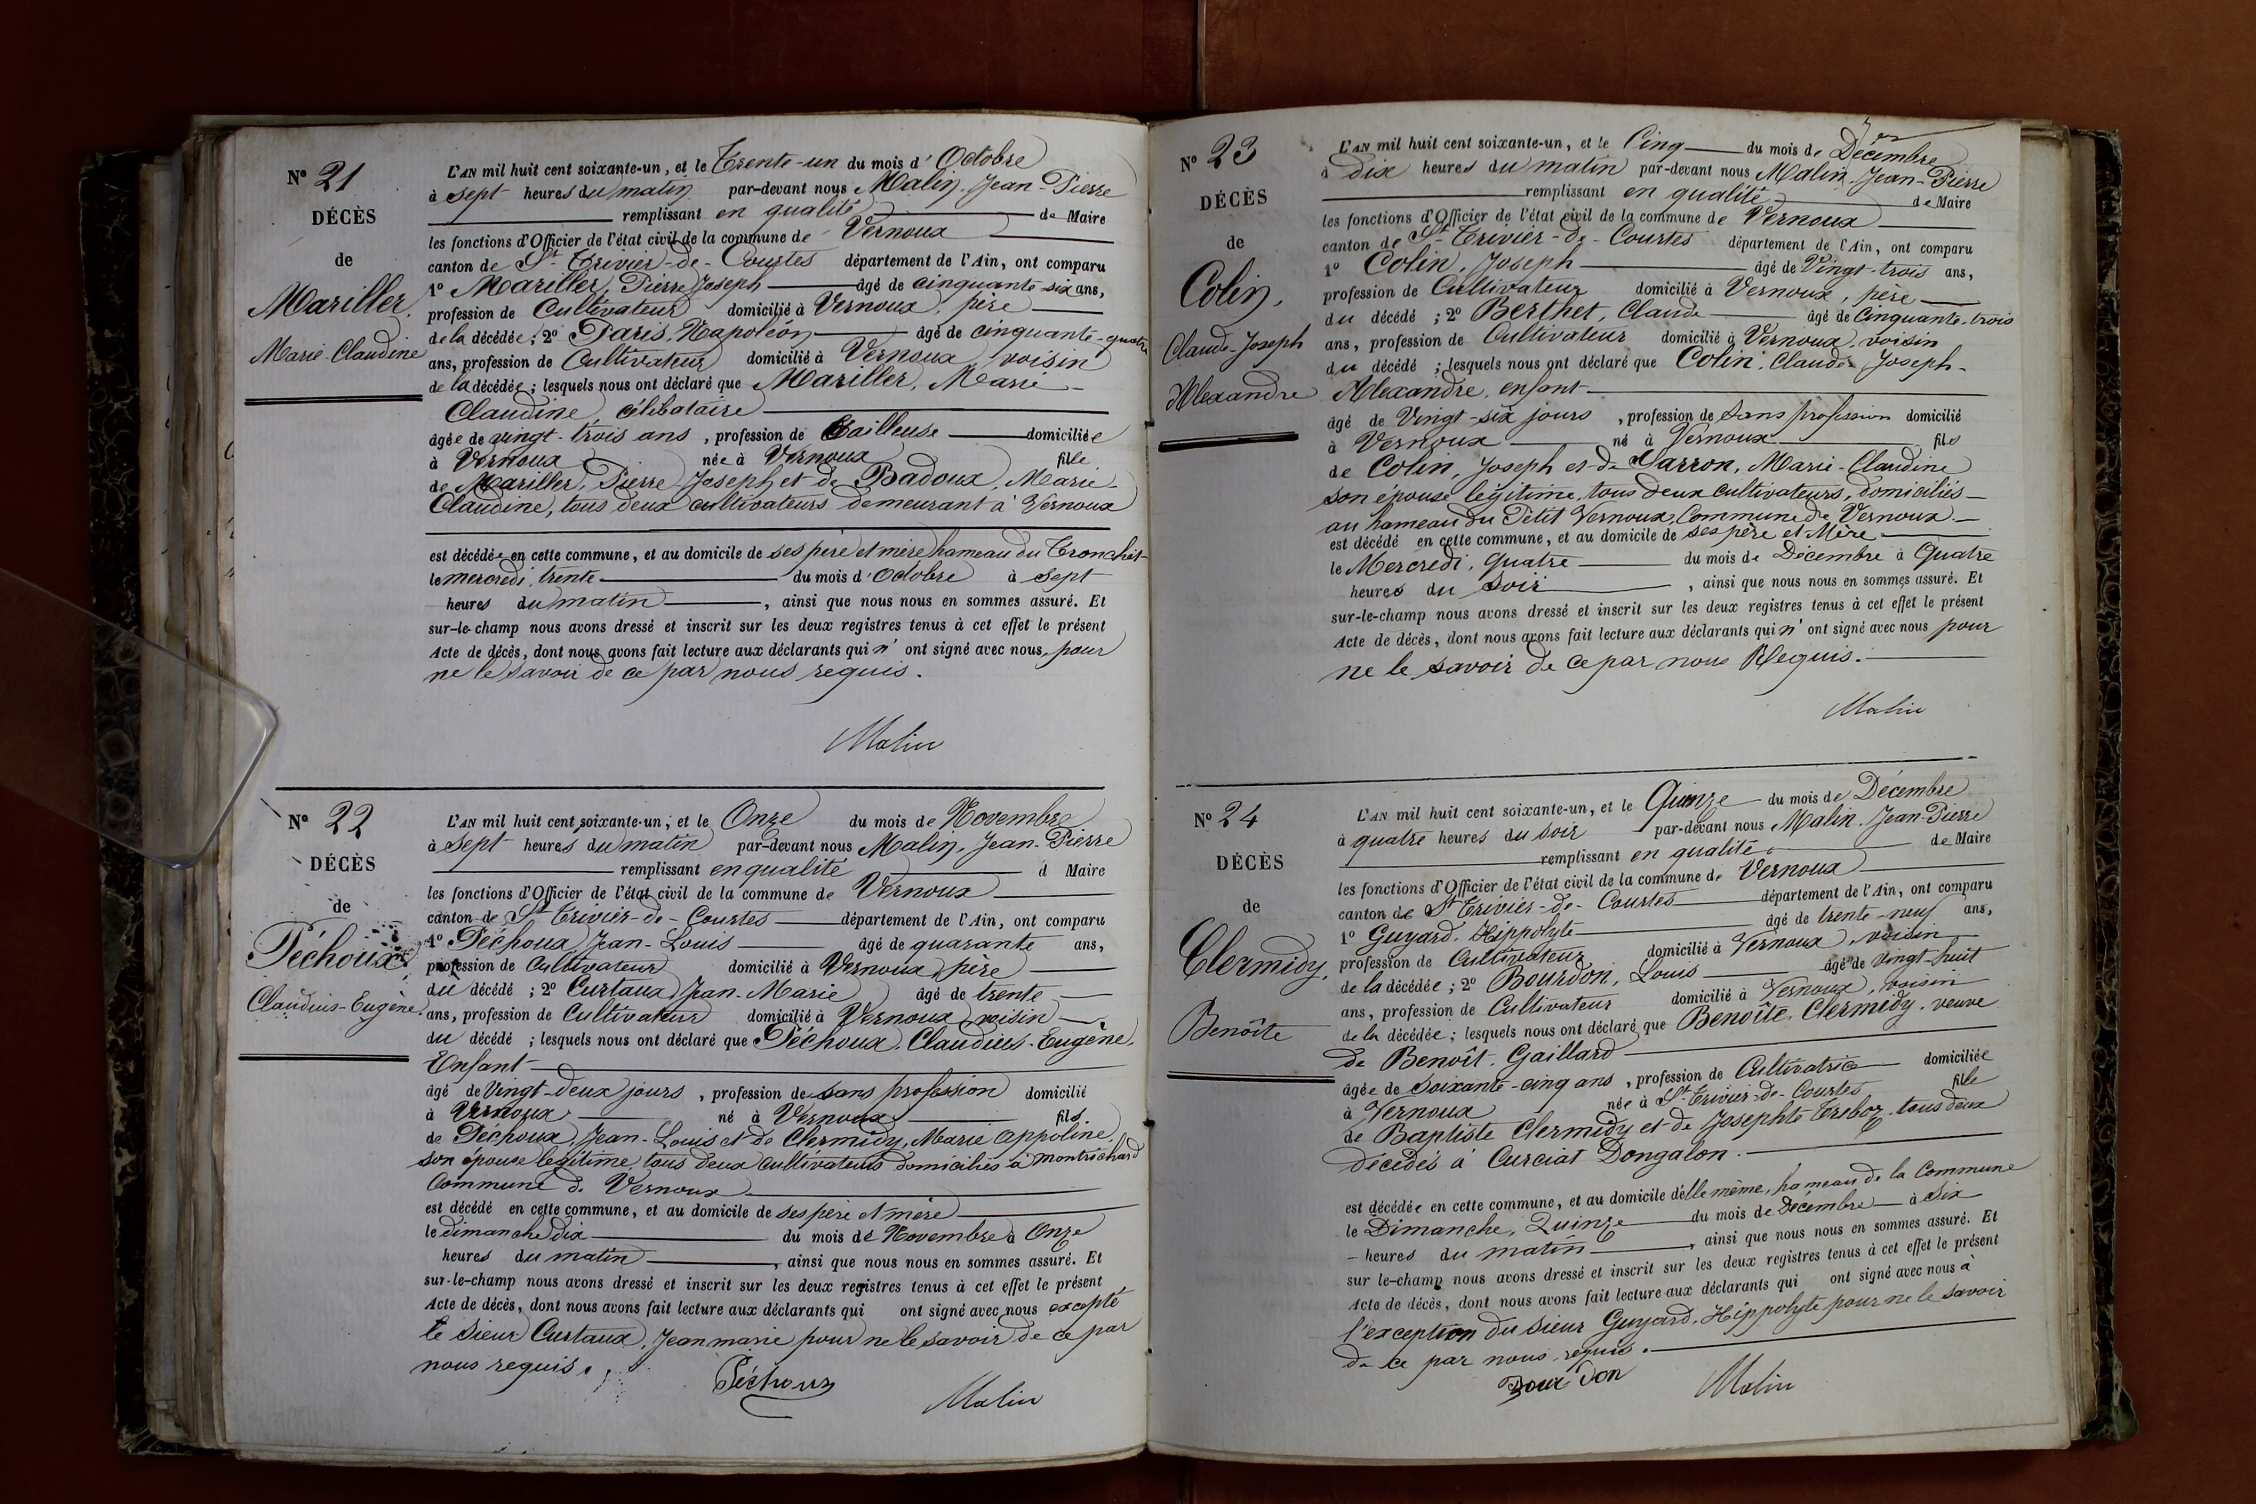 N° 21
DÉCÈS
de
Mariller,
Marie-Claudine
L'AN mil huit cent soixante-un, et le Trente-un du mois d' Octobre
à sept heures du matin par-devant nous Malin, Jean-Pierre
remplissant en qualité de Maire
les fonctions d'Officier de l'état civil de la commune de Vernoux
canton de St Trivier-de-Courtes département de l'Ain, ont comparu
1° Mariller, Pierre Joseph âgé de cinquante six ans,
profession de Cultivateur domicilié à Vernoux, père
de la décédée; 2° Paris, Napoléon âgé de cinquante-quatre
ans, profession de Cultivateur domicilié à Vernoux, voisin
de la décédée; lesquels nous ont déclaré que Mariller, Marie-
Claudine, célibataire
âgée de vingt-trois ans, profession de Tailleuse domiciliée
à Vernoux née à Vernoux fille
de Mariller, Pierre Joseph et de Badoux, Marie-
Claudine, tous deux cultivateurs demeurant à Vernoux
est décédée en cette commune, et au domicile de ses père et mère hameau du Tronchet
le mercredi, trente du mois d'Octobre à sept
heures du matin, ainsi que nous nous en sommes assuré. Et
sur-le-champ nous avons dressé et inscrit sur les deux registres tenus à cet effet le présent
Acte de décès, dont nous avons fait lecture aux déclarants qui n'ont signé avec nous, pour
ne le savoir de ce par nous requis.
Malin
N° 22
DÉCÈS
de
Péchoux,
Claudius-Eugène
L'AN mil huit cent soixante-un, et le Onze du mois de Novembre
à sept heures du matin par-devant nous Malin, Jean-Pierre
remplissant en qualité d Maire
les fonctions d'Officier de l'état civil de la commune de Vernoux
canton de St Trivier-de-Courtes département de l'Ain, ont comparu
1° Péchoux, Jean-Louis âgé de quarante ans,
profession de Cultivateur domicilié à Vernoux, père
du décédé; 2° Curtaux, Jean-Marie âgé de trente
ans, profession de Cultivateur domicilié à Vernoux, voisin
du décédé; lesquels nous ont déclaré que Péchoux, Claudius-Eugène,
Enfant
âgé de Vingt-deux jours, profession de sans profession domicilié
à Vernoux né à Vernoux fils
de Péchoux, Jean-Louis et de Clermidy, Marie Appoline,
son épouse légitime, tous deux cultivateurs domiciliés à Montrichard
Commune de Vernoux
est décédé en cette commune, et au domicile de ses père et mère
le dimanche dix du mois de Novembre à Onze
heures du matin, ainsi que nous nous en sommes assuré. Et
sur-le-champ nous avons dressé et inscrit sur les deux registres tenus à cet effet le présent
Acte de décès, dont nous avons fait lecture aux déclarants qui ont signé avec nous excepté
le Sieur Curtaux, Jean marie pour ne le savoir de ce par
nous requis.
Péchoux
Malin
N° 23
DÉCÈS
de
Colin,
Claude-Joseph
Alexandre
L'AN mil huit cent soixante-un, et le Cinq du mois de Décembre
à dix heures du matin par-devant nous Malin, Jean-Pierre
remplissant en qualité de Maire
les fonctions d'Officier de l'état civil de la commune de Vernoux
canton de St Trivier-de-Courtes département de l'Ain, ont comparu
1° Colin, Joseph âgé de Vingt-trois ans,
profession de Cultivateur domicilié à Vernoux, père
du décédé; 2° Berthet, Claude âgé de Cinquante-trois
ans, profession de Cultivateur domicilié à Vernoux, voisin
du décédé; lesquels nous ont déclaré que Colin, Claude Joseph-
Alexandre, enfant
âgé de Vingt-six jours, profession de sans profession domicilié
à Vernoux né à Vernoux fils
de Colin, Joseph et de Sarron, Marie-Claudine
son épouse légitime, tous deux cultivateurs, domiciliés
au hameau du Petit Vernoux, Commune de Vernoux.
est décédé en cette commune, et au domicile de ses père et Mère
le Mercredi, quatre du mois de Décembre à Quatre
heures du Soir, ainsi que nous nous en sommes assuré. Et
sur-le-champ nous avons dressé et inscrit sur les deux registres tenus à cet effet le présent
Acte de décès, dont nous avons fait lecture aux déclarants qui n'ont signé avec nous pour
ne le savoir de ce par nous Requis.
Malin
N° 24
DÉCÈS
de
Clermidy,
Benoîte
L'AN mil huit cent soixante-un, et le Quinze du mois de Décembre
à quatre heures du soir par-devant nous Malin, Jean-Pierre
remplissant en qualité de Maire
les fonctions d'Officier de l'état civil de la commune de Vernoux
canton de St Trivier-de-Courtes département de l'Ain, ont comparu
1° Guyard, Hippolyte âgé de trente-neuf ans,
profession de Cultivateur domicilié à Vernoux, voisin
de la décédée; 2° Bourdon, Louis âgé de vingt-huit
ans, profession de Cultivateur domicilié à Vernoux, voisin
de la décédée; lesquels nous ont déclaré que Benoîte, Clermidy, veuve
de Benoît, Gaillard
âgée de soixante-cinq ans, profession de Cultivatrice domiciliée
à Vernoux née à St Trivier-de-Courtes fille
de Baptiste Clermidy et de Josephte Treboz, tous deux
décédés à Curciat Dongalon.
est décédée en cette commune, et au domicile d'elle même, hameau de la Commune
le Dimanche, Quinze du mois de Décembre à Six
heures du matin, ainsi que nous nous en sommes assuré. Et
sur le-champ nous avons dressé et inscrit sur les deux registres tenus à cet effet le présent
Acte de décès, dont nous avons fait lecture aux déclarants qui ont signé avec nous à
l'exception du sieur Guyard, Hippolyte pour ne le savoir
de ce par nous requis.
Bourdon
Malin